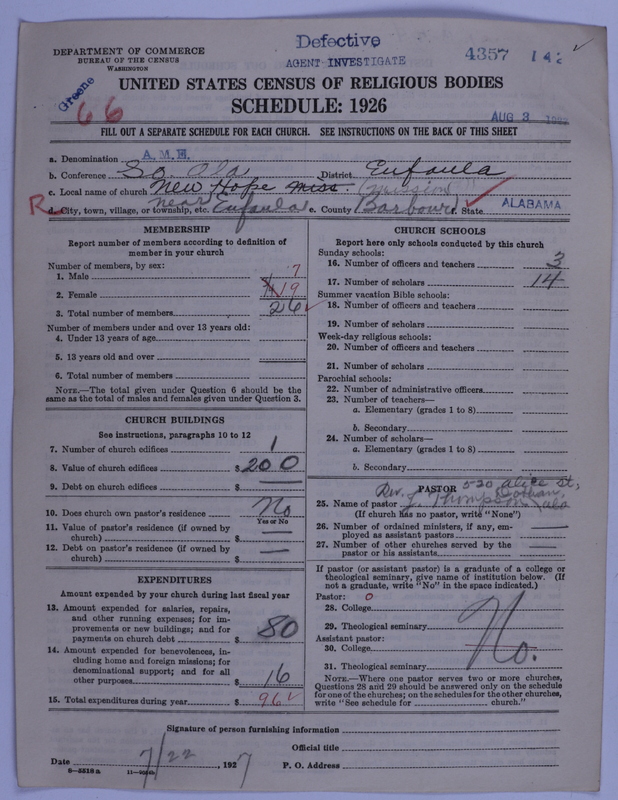 Defective
AGENT INVESTIGATE
4357
DEPARTMENT OF COMMERCE
BUREAU OF THE CENSUS
WASHINGTON
Greene
66
UNITED STATES CENSUS OF RELIGIOUS BODIES
SCHEDULE: 1926
AUG 3
FILL OUT A SEPARATE SCHEDULE FOR EACH CHURCH. SEE INSTRUCTIONS ON THE BACK OF THIS SHEET
a. Denomination A.M.E.
b. Conference So. Ala District Eufaula
c. Local name of church New Hope Miss. (mission)
R. d. City, town, village, or township, etc. near Eufaula e. County Barbour f. State ALABAMA
MEMBERSHIP
Report number of members according to definition of
member in your church
Number of members, by sex:
1. Male 7
2. Female 19
3. Total number of members 26
Number of members under and over 13 years old:
4. Under 13 years of age
5. 13 years old and over
6. Total number of members
NOTE.—The total given under Question 6 should be the
same as the total of males and females given under Question 3.
CHURCH BUILDINGS
See instructions, paragraphs 10 to 12
7. Number of church edifices 1
8. Value of church edifices $ 200
9. Debt on church edifices $ —
10. Does church own pastor's residence No
Yes or No
11. Value of pastor's residence (if owned by
church) $ —
12. Debt on pastor's residence (if owned by
church) $ —
EXPENDITURES
Amount expended by your church during last fiscal year
13. Amount expended for salaries, repairs,
and other running expenses; for im-
provements or new buildings; and for
payments on church debt $ 80
14. Amount expended for benevolences, in-
cluding home and foreign missions; for
denominational support; and for all
other purposes $ 16
15. Total expenditures during year $ 96
CHURCH SCHOOLS
Report here only schools conducted by this church
Sunday schools:
16. Number of officers and teachers 3
17. Number of scholars 14
Summer vacation Bible schools:
18. Number of officers and teachers
19. Number of scholars
Week-day religious schools:
20. Number of officers and teachers
21. Number of scholars
Parochial schools:
22. Number of administrative officers
23. Number of teachers—
a. Elementary (grades 1 to 8)
b. Secondary
24. Number of scholars—
a. Elementary (grades 1 to 8)
b. Secondary
PASTOR 520 Alice St,
Dothan,
25. Name of pastor Rev. J. Thompson Ala
(If church has no pastor, write "None")
26. Number of ordained ministers, if any, em-
ployed as assistant pastors —
27. Number of other churches served by the
pastor or his assistants —
If pastor (or assistant pastor) is a graduate of a college or
theological seminary, give name of institution below. (If
not a graduate, write "No" in the space indicated.)
Pastor: 0
28. College
29. Theological seminary
Assistant pastor: No.
30. College
31. Theological seminary
NOTE.—Where one pastor serves two or more churches,
Questions 28 and 29 should be answered only on the schedule
for one of the churches; on the schedules for the other churches,
write "See schedule for church."
Signature of person furnishing information
Official title
Date 7/22, 1927 P. O. Address
8—5518a